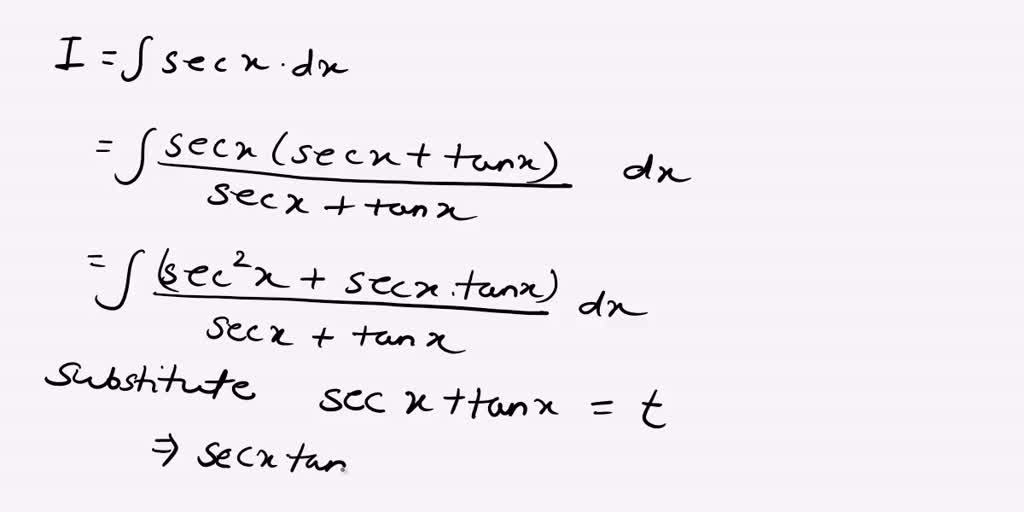 I = ∫ sec x · dx
= ∫ sec x (sec x + tan x) / sec x + tan x dx
= ∫ (sec²x + sec x · tan x) / sec x + tan x dx
Substitute sec x + tan x = t
⇒ sec x tan